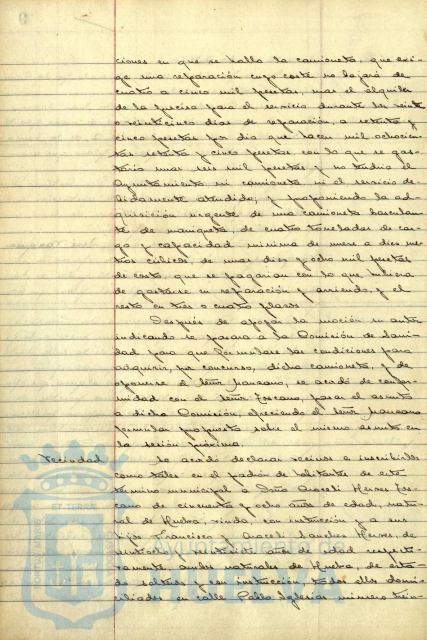 ciones en que se halla la camioneta, que exi-
ge una reparación cuyo coste no bajará de
cuatro a cinco mil pesetas, mas el alquiler
de la precisa para el servicio durante los veinte
o veinticinco dias de reparación, a setenta y
cinco pesetas por dia que hacen mil ochocien-
tas setenta y cinco pesetas con lo que se gas-
taria unas seis mil pesetas y no tendria el
Ayuntamiento ni camioneta, ni el servicio de-
bidamente atendido; y proponiendo la ad-
quisición urgente de una camioneta basculan-
te de maniqueta, de cuatro toneladas de car-
ga y capacidad minima de nueve a diez me-
tros cúbicos de unas diez y ocho mil pesetas
de costo, que se pagarian con lo que hubiera
de gastarse en reparación y arriendo, y el
resto en tres o cuatro plazos.
Después de apoyar la moción su autor
indicando se pasara a la Comisión de Sani-
dad para que formulase las condiciones para
adquirir, por concurso, dicha camioneta, y de
oponerse el Señor Manzano, se acordó de confor-
midad con el Señor Toscano, pasar el asunto
a dicha Comisión, ofreciendo el Señor Manzano
formular propuesta sobre el mismo asunto en
la sesión próxima.
Vecindad Se acordó declarar vecinos e inscribirlos
como tales en el padrón de habitantes de este
término municipal a Doña Araceli Hierves Tos-
cano de cincuenta y ocho años de edad, natu-
ral de Huelva, viuda, con instrucción y a sus
hijos Francisco y Araceli Sanchez Hierves, de
y veintisiete años de edad respecti-
vamente, ambos naturales de Huelva, de esta-
do solteros y con instrucción, todos ellos domi-
ciliados en calle Pablo Iglesias número trein-